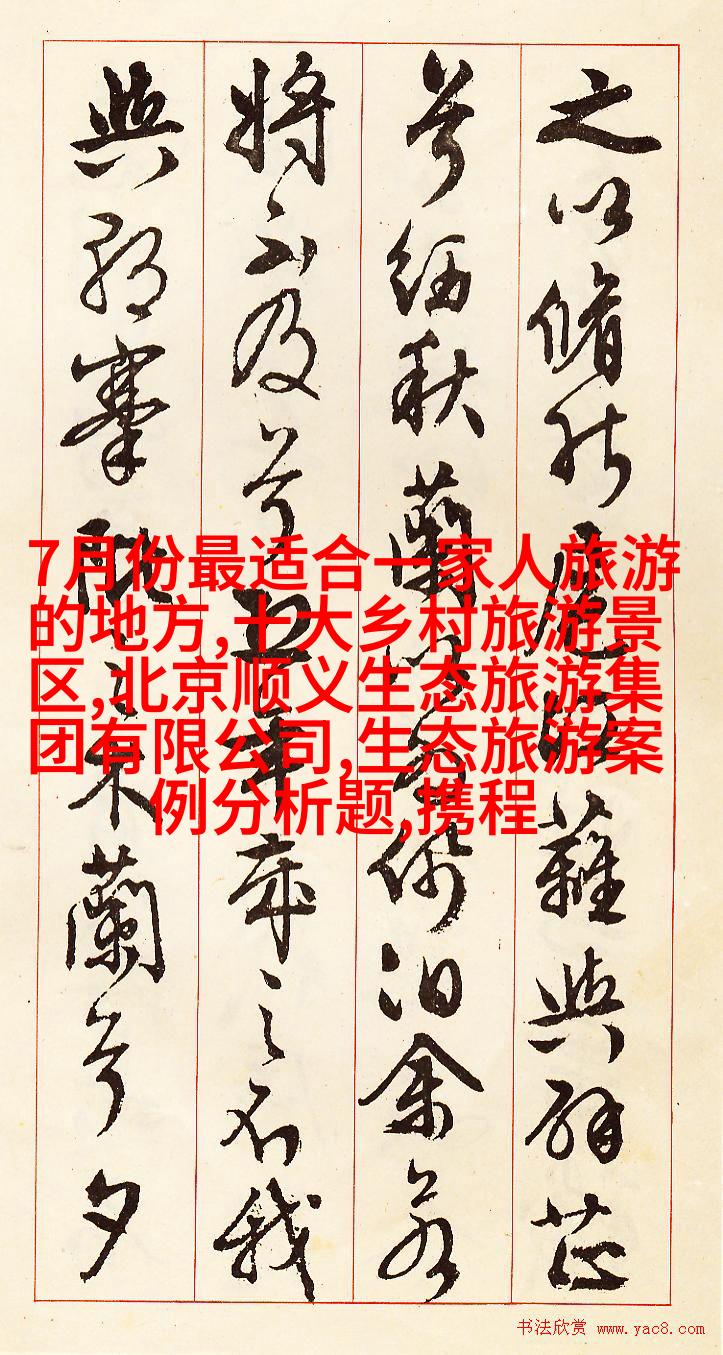 之以脩能扈江蘺與辟芷
兮紉秋蘭以為佩汩余若
將不及兮恐年歲之不我
與朝搴阰之木蘭兮夕
7月份最适合一家人旅游
的地方,十大乡村旅游景
区,北京顺义生态旅游集
团有限公司,生态旅游案
例分析题,携程
书法欣赏 www.yac8.com